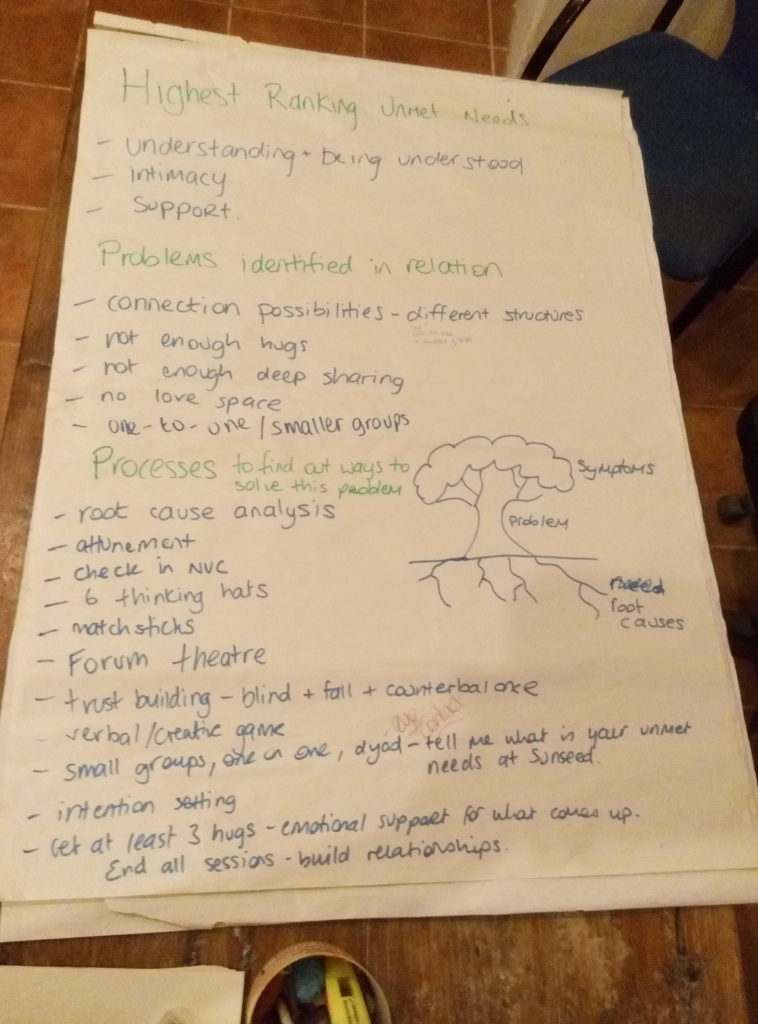 Highest Ranking Unmet Needs
- understanding + being understood
- Intimacy
- Support.
Problems identified in relation
- connection possibilities - different structures
- not enough hugs
- not enough deep sharing
- no love space
- one-to-one / smaller groups
Processes to find out ways to
solve this problem
- root cause analysis
- attunement
- check in NVC
- 6 thinking hats
- matchsticks
- Forum theatre
- trust building - blind + fall + counterbalance
- verbal/creative game
- small groups, one on one, dyad - tell me what is your unmet
needs at Sunseed.
- eye contact
- intention setting
- Get at least 3 hugs - emotional support for what comes up.
End all sessions - build relationships.
Symptoms
Problem
root
causes